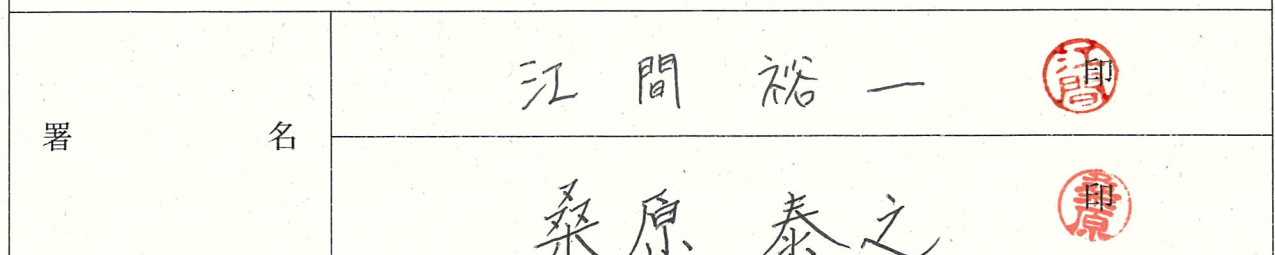 署名
江間 裕一 印
桑原 泰之 印